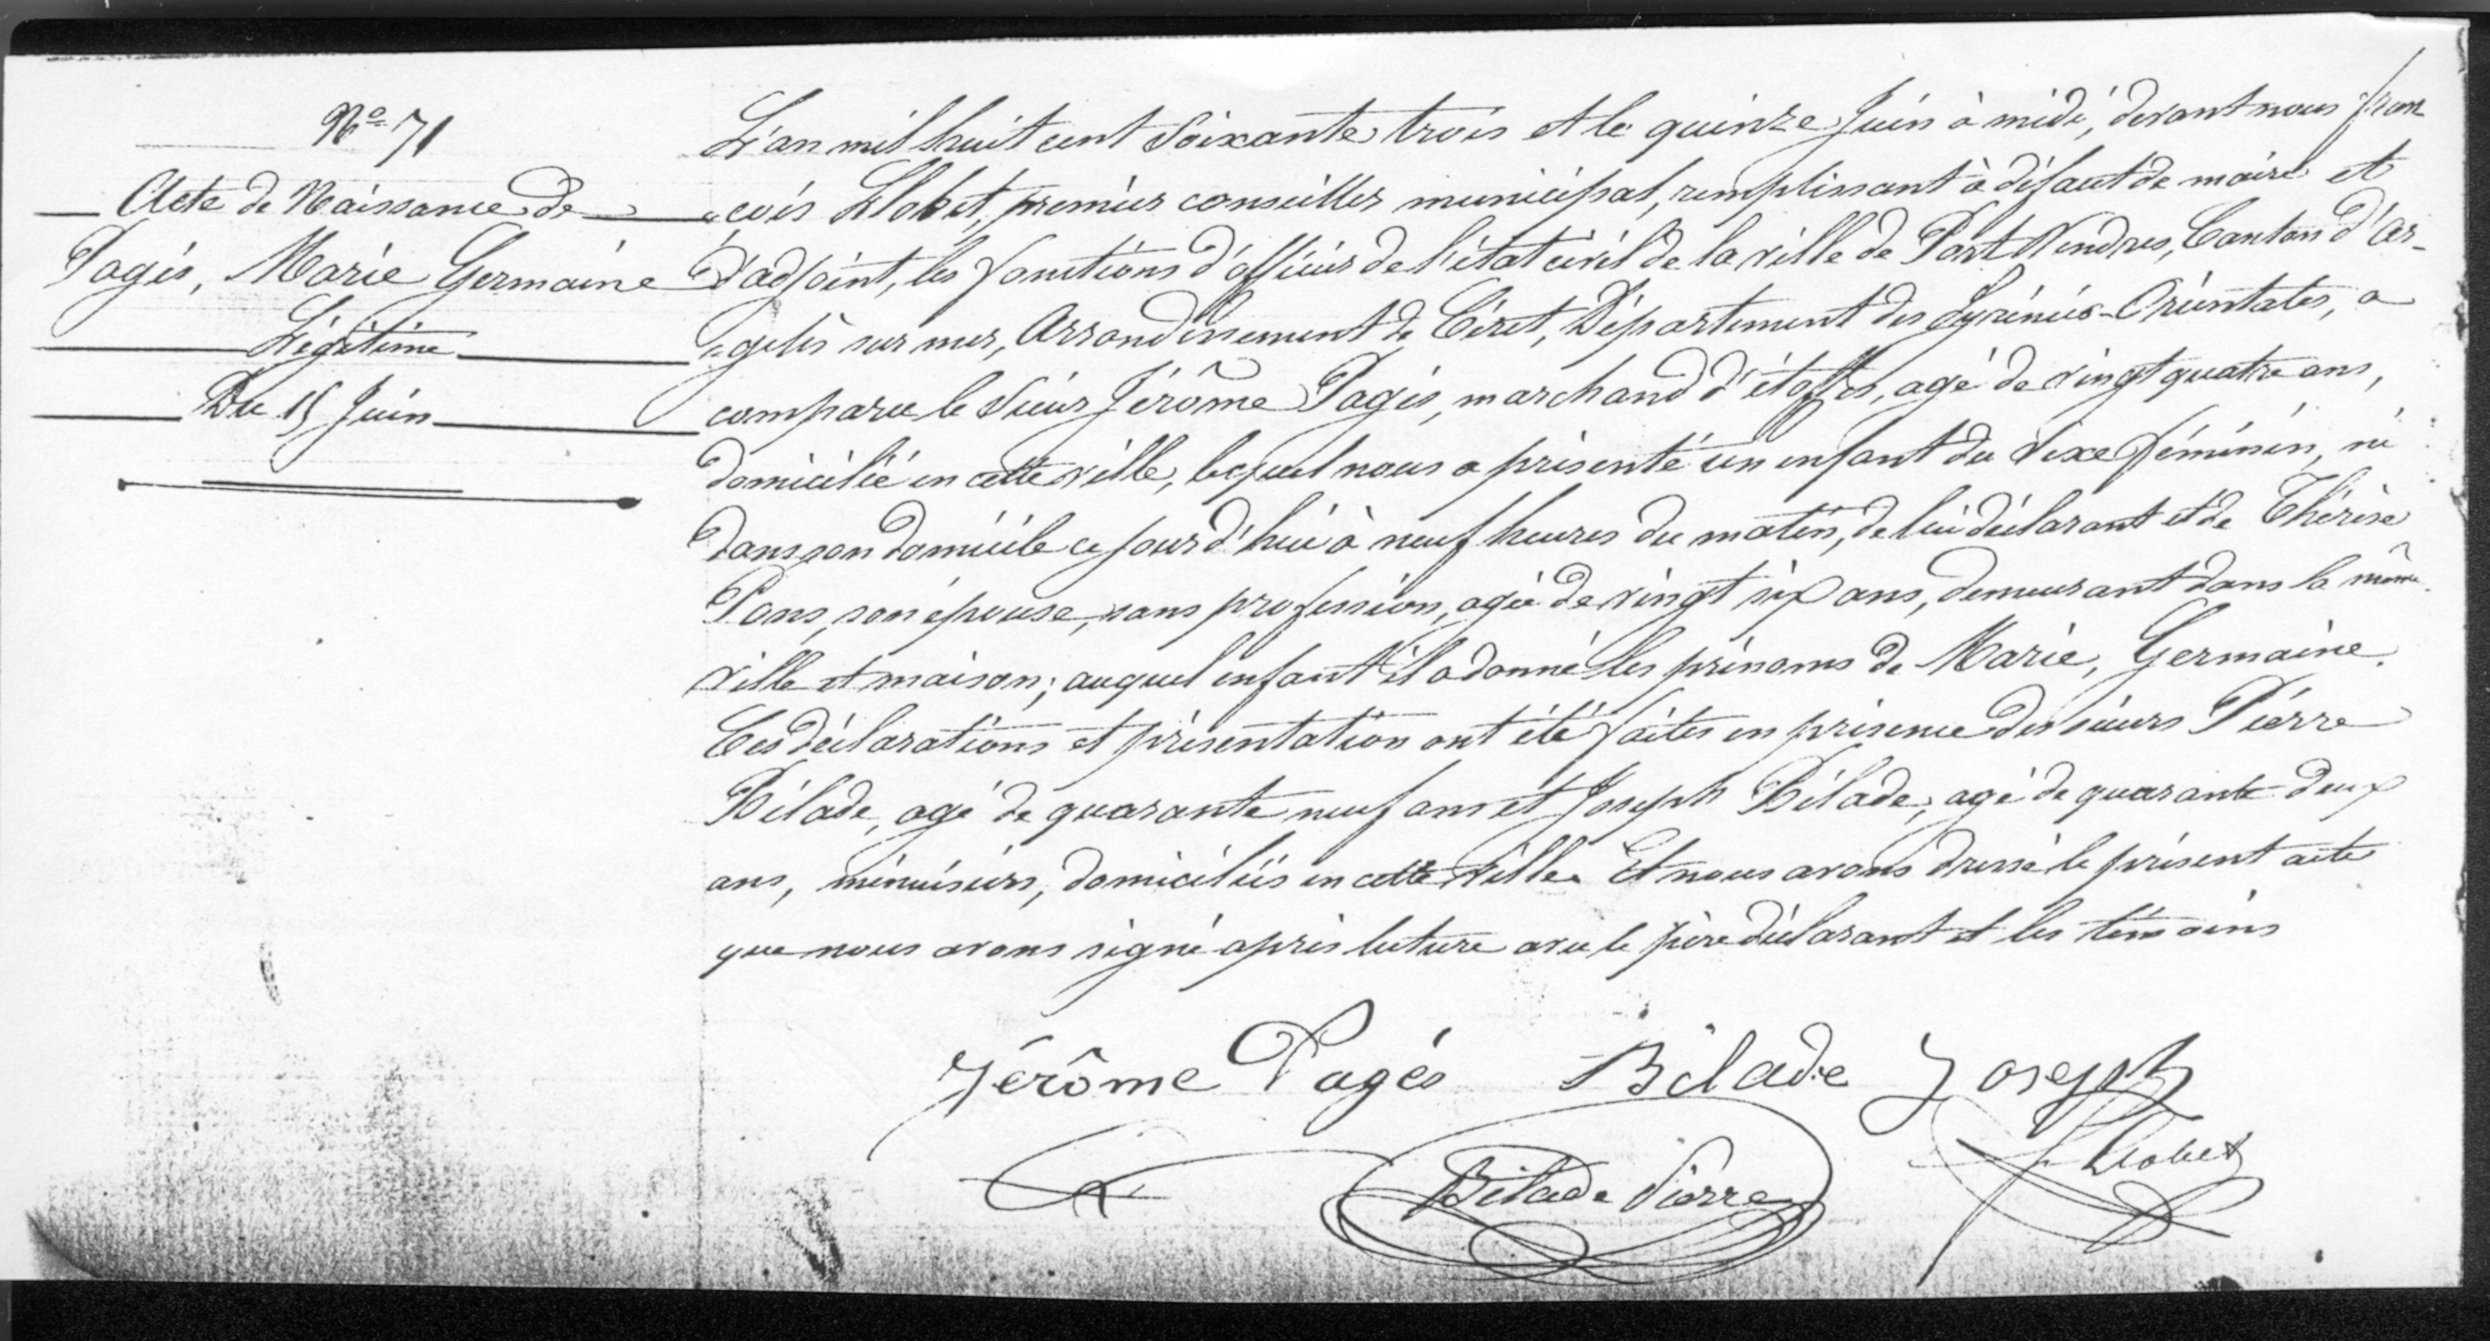 Nº 71
Acte de Naissance de
Pagès, Marie Germaine
Légitime
Du 15 Juin
L'an mil huit cent Soixante trois et le quinze Juin à midi, devant nous Fran
çois Llobet, premier conseiller municipal, remplissant à défaut de maire et
d'adjoint, les fonctions d'officier de l'état civil de la ville de Port Vendres, Canton d'Ar-
gelès sur mer, Arrondissement de Céret, Département des Pyrénées-Orientales, a
comparu le sieur Jérôme Pagès, marchand d'étoffes, agé de vingt quatre ans,
domicilié en cette ville, lequel nous a présenté un enfant du sexe féminin, né
dans son domicile ce jourd'hui à neuf heures du matin, de lui déclarant et de Thérèse
Pons, son épouse, sans profession, agée de vingt six ans, demeurant dans la même
ville et maison; auquel enfant il a donné les prénoms de Marie, Germaine.
Ces déclarations et présentation ont été faites en présence des sieurs Pierre
Bélade, agé de quarante neuf ans et Joseph Bélade, agé de quarante deux
ans, menuisiers, domiciliés en cette ville. Et nous avons dressé le présent acte
que nous avons signé après lecture avec le père déclarant et les témoins
Jérôme Pagés Bélade Joseph
Bélade Pierre Llobet